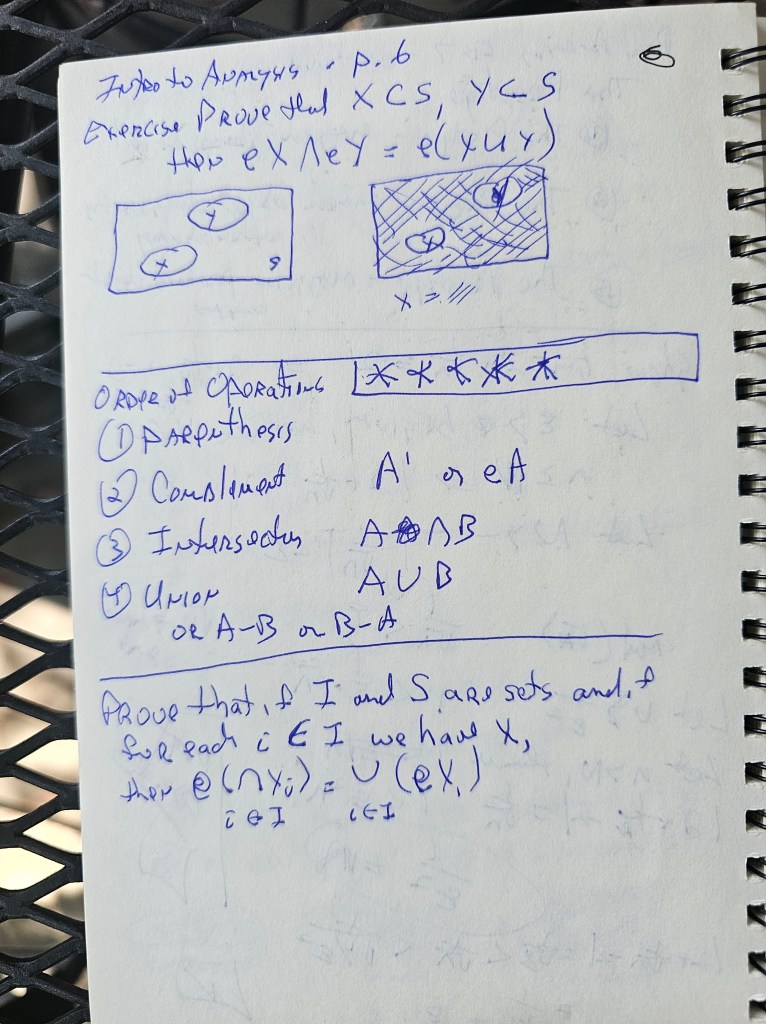 6
Intro to Analysis . p. 6
Exercise Prove that X ⊂ S, Y ⊂ S
then eX ∩ eY = e(X ∪ Y)
Y
X S
Y
X
X = ///
Order of Operations * * * * *
① Parenthesis
② Complement A' or eA
③ Intersection A ∩ B
④ Union A ∪ B
or A-B or B-A
Prove that, if I and S are sets and if
for each i ∈ I we have X,
then e(∩Xi) = ∪(eXi)
i ∈ I i ∈ I